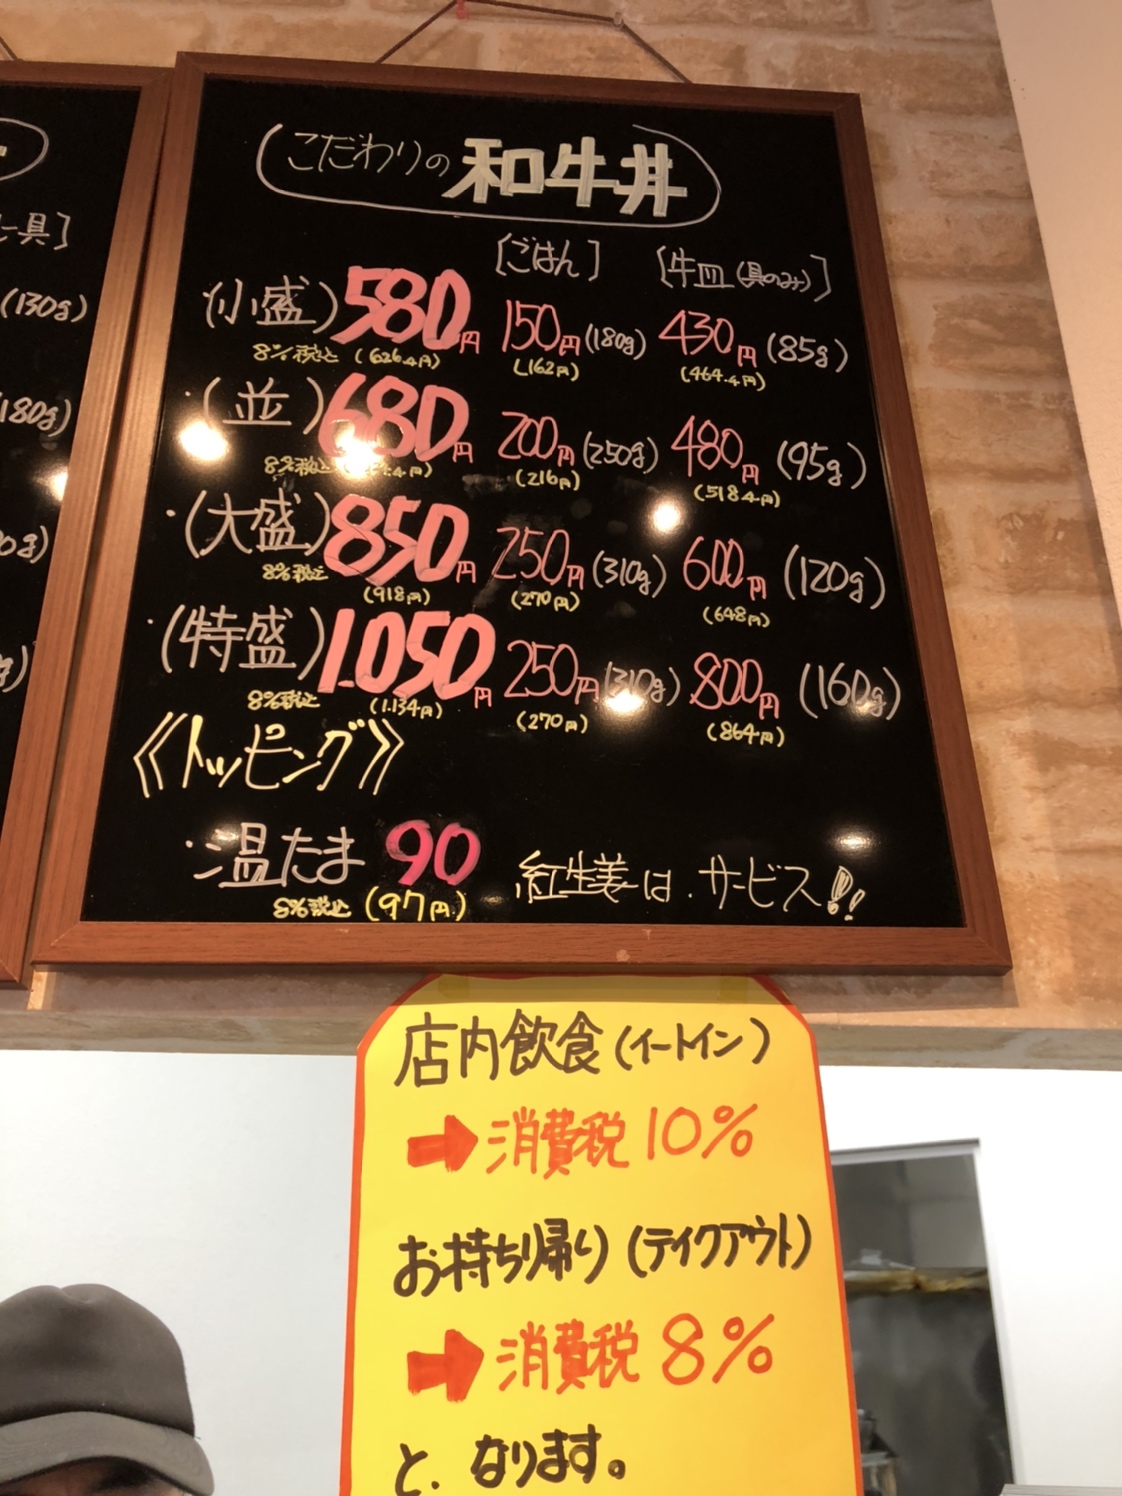 こだわりの和牛丼
[ごはん] [牛皿(具のみ)]
・(小盛) 580円 150円(180g) 430円(85g)
8%税込(626.4円) (162円) (464.4円)
・(並) 680円 200円(250g) 480円(95g)
8%税込 .4円) (216円) (518.4円)
・(大盛) 850円 250円(310g) 600円(120g)
8%税込 (918円) (270円) (648円)
・(特盛) 1.050円 250円(310g) 800円(160g)
8%税込 (1.134円) (270円) (864円)
《トッピング》
・温たま 90 紅生姜は.サービス!!
8%税込 (97円)
具]
(130g)
180g)
0g)
g)
店内飲食(イートイン)
➡消費税10%
お持ち帰り(テイクアウト)
➡消費税8%
と.なります。